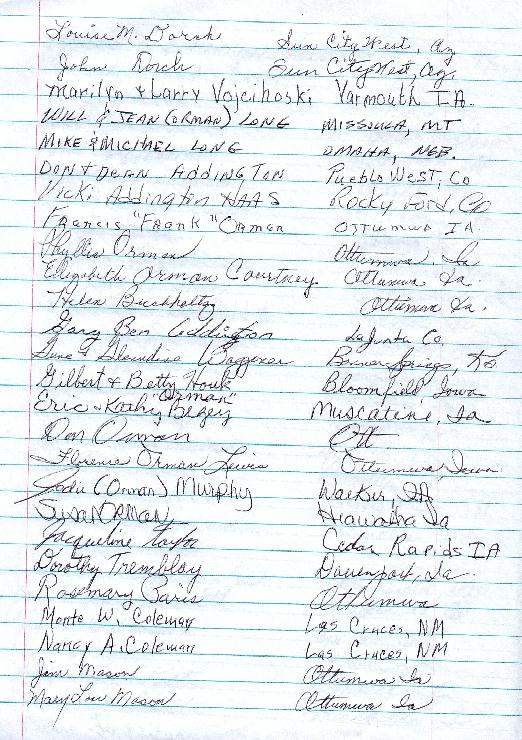 Louise M. Dorch Sun City West, Az
John Dorch Sun City West, Az
Marilyn & Larry Vojcihoski Yarmouth IA.
WILL & JEAN (ORMAN) LONG MISSOULA, MT
MIKE & MICHAEL LONG OMAHA, NEB.
DON & DEAN ADDINGTON Pueblo West, Co
Vicki Addington HAAS Rocky Ford, Co
Francis "Frank" Orman OTTUMWA IA.
Phyllis Orman Ottumwa, Ia
Elizabeth Orman Courtney Ottumwa Ia.
Helen Buckholtz Ottumwa Ia.
Gary Ben Addington LaJunta Co.
Gene & Glendine Waggoner Bonner Springs, KS
Gilbert & Betty Houk Bloomfield, Iowa
"Orman"
Eric & Kathy Begey Muscatine, Ia.
Don Orman Ott
Florence Orman Lewis Ottumwa, Iowa
Jodie (Orman) Murphy Walker, IA
Susan ORMAN Hiawatha Ia
Jacqueline Taylor Cedar Rapids IA
Dorothy Tremblay Davenport, Ia.
Rosemary Paris Ottumwa
Monte W. Coleman Las Cruces, NM
Nancy A. Coleman Las Cruces, NM
Jim Mason Ottumwa Ia
Mary Lou Mason Ottumwa Ia